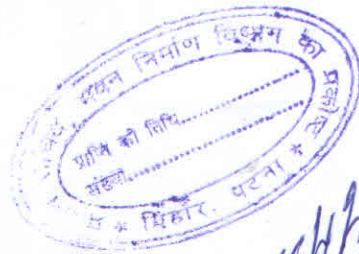 भवन निर्माण विभाग का प्रकोष्ठ
प्राप्ति की तिथि....................
संख्या....................
* बिहार, पटना *